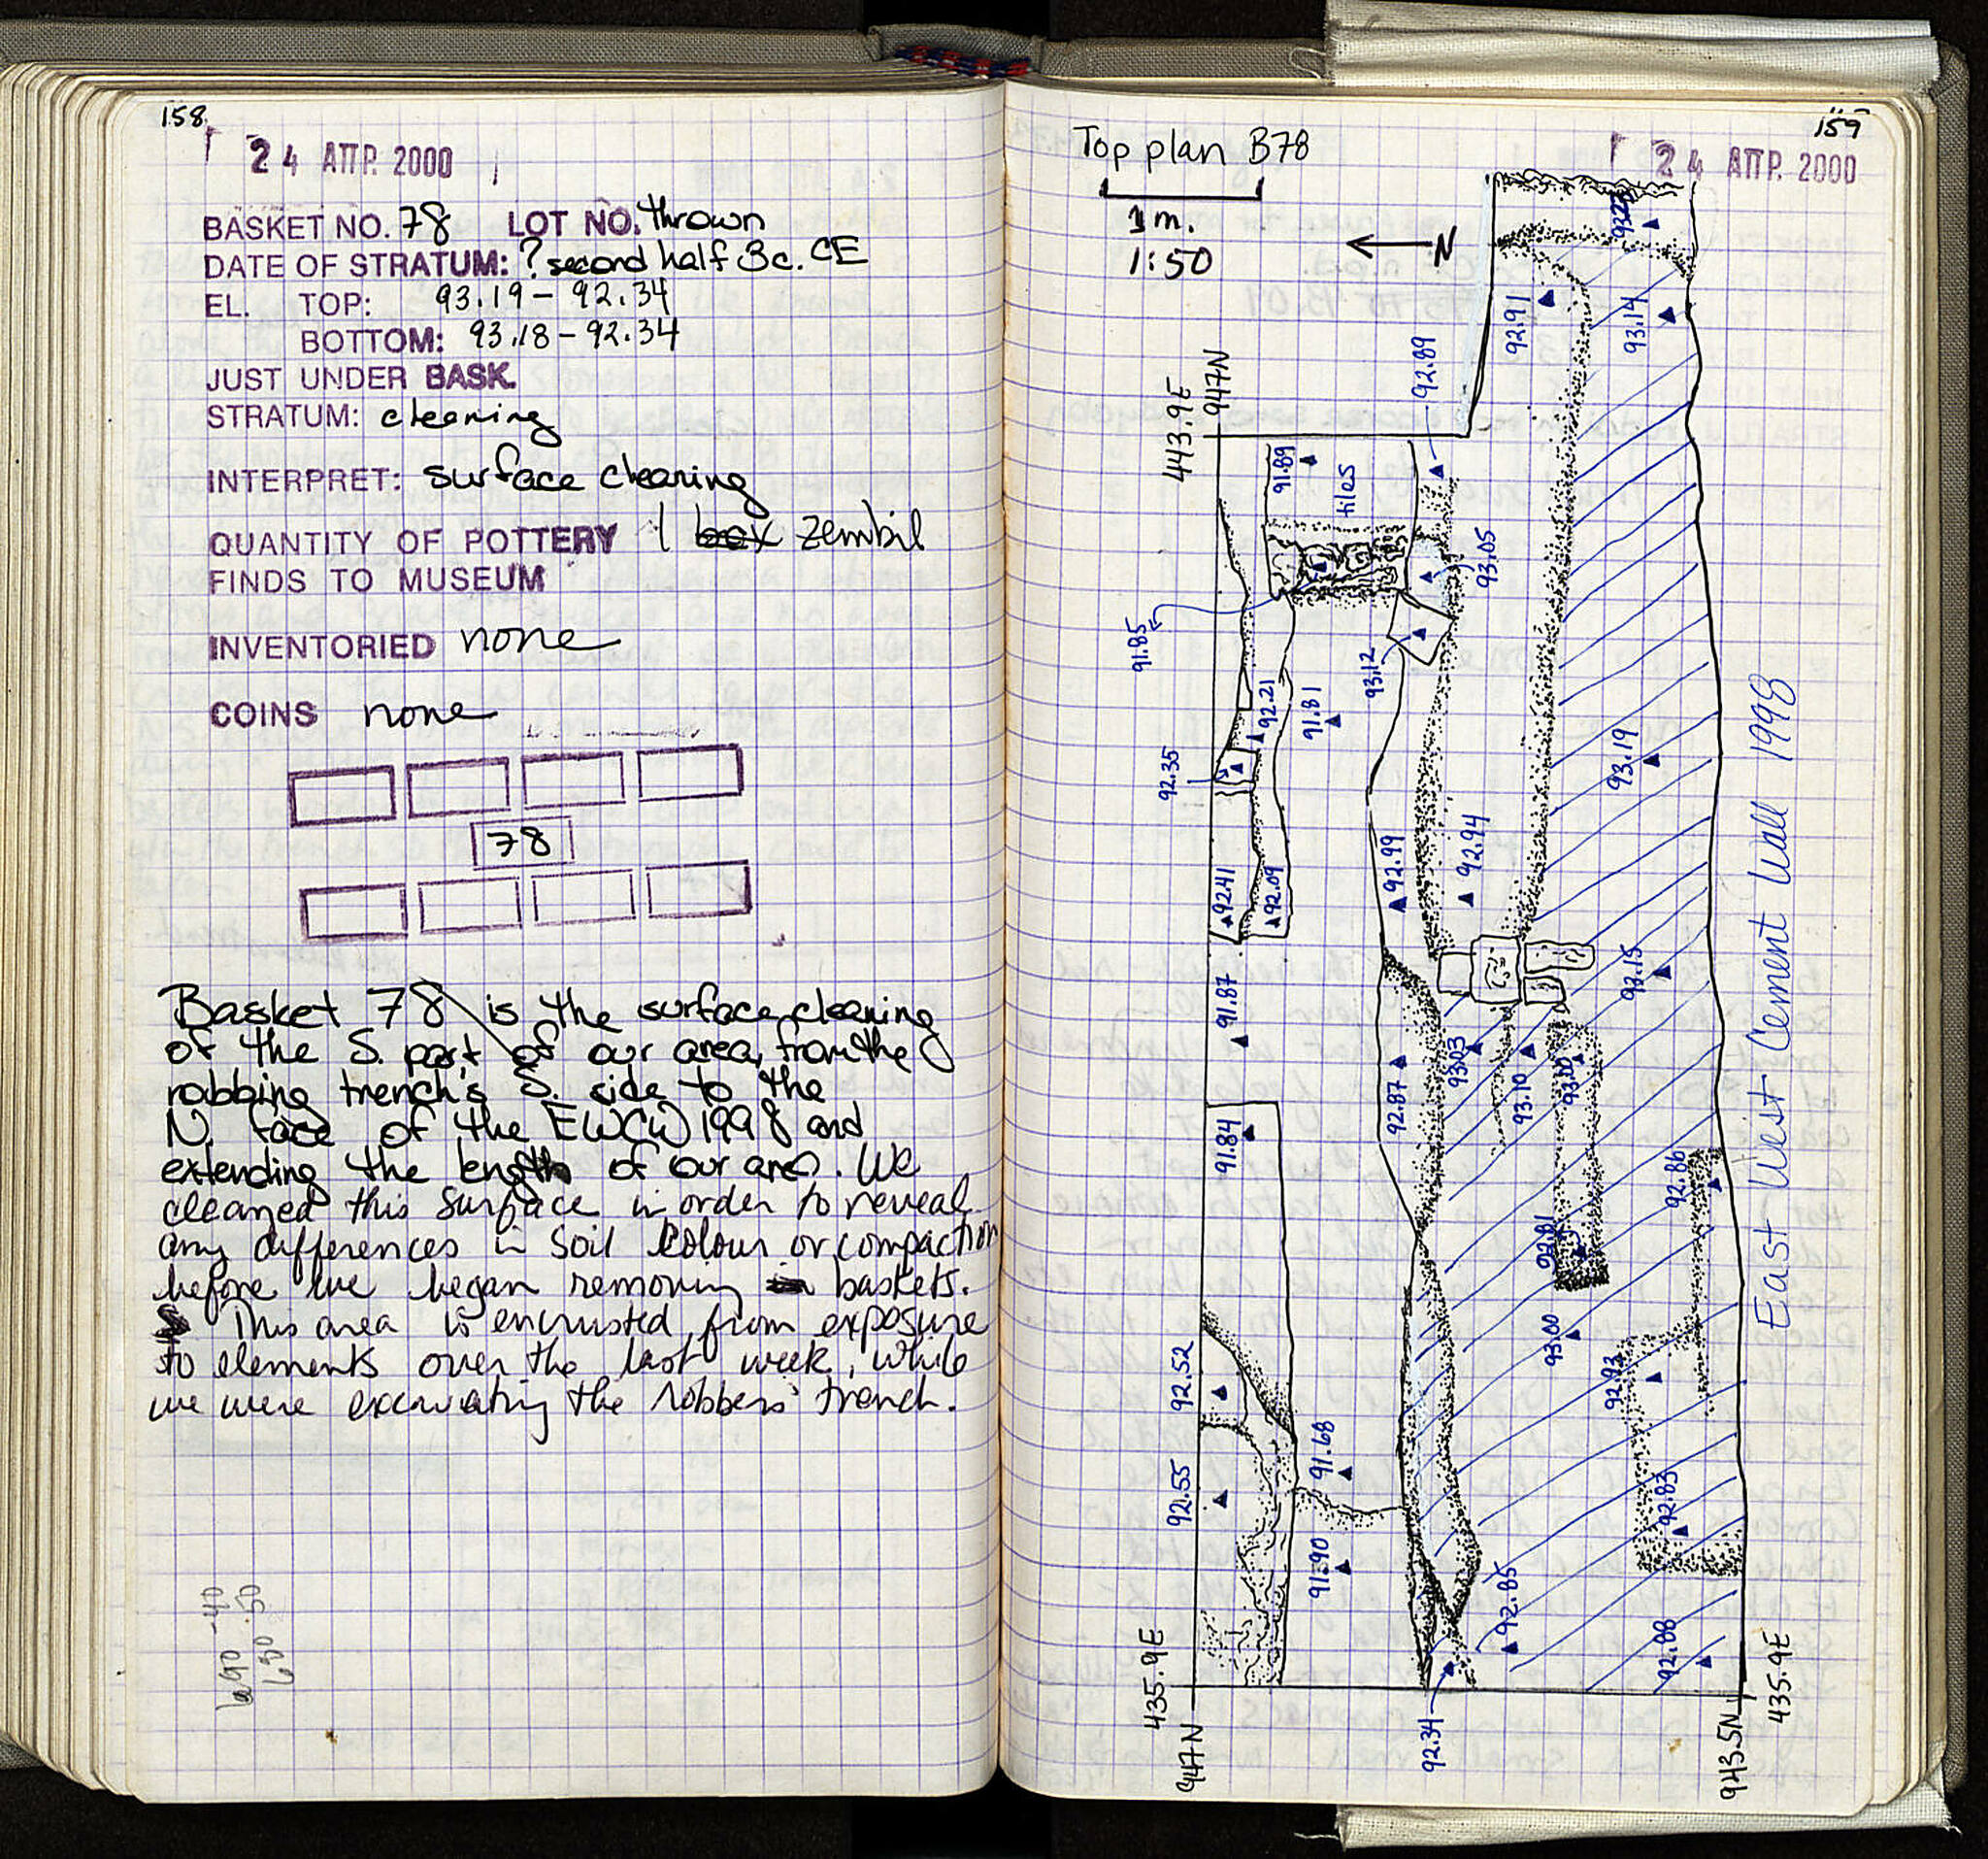 158
24 ΑΠΡ. 2000
BASKET NO. 78 LOT NO. thrown
DATE OF STRATUM: ? second half 3c. CE
EL. TOP: 93.19 – 92.34
BOTTOM: 93.18 – 92.34
JUST UNDER BASK.
STRATUM: cleaning
INTERPRET: surface cleaning
QUANTITY OF POTTERY 1 box zembil
FINDS TO MUSEUM
INVENTORIED none
COINS none
78
Basket 78 is the surface cleaning
of the S. part of our area, from the
robbing trench's S. side to the
N. face of the EWCW 1998 and
extending the length of our area. We
cleaned this surface in order to reveal
any differences in soil colour or compaction
before we began removing baskets.
This area is encrusted from exposure
to elements over the last week, while
we were excavating the robbers' trench.
690 .40
630 .50
159
24 ΑΠΡ. 2000
Top plan B78
1 m.
1:50
N
443.9E
947N
92.91
93.14
92.89
91.89
tiles
93.05
91.85
93.12
92.21
91.81
92.35
93.19
92.99
92.94
92.41
92.09
93.15
91.87
92.87
93.03
93.10
93.10
91.84
92.86
92.81
93.00
92.93
92.52
91.68
92.55
92.83
91.90
92.85
92.88
92.34
East West Cement Wall 1998
435.9E
947N
943.5N
435.9E